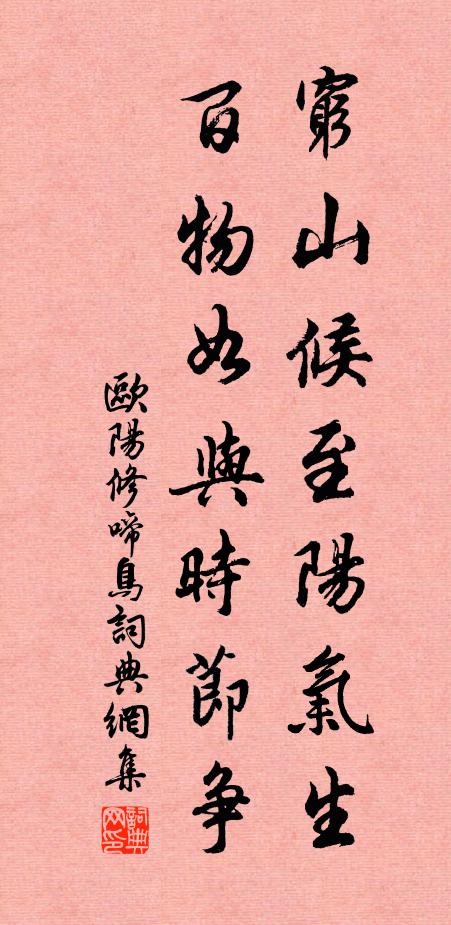 窮山候至陽氣生
百物如與時節争
歐陽修啼鳥詞典網集
詞典网印